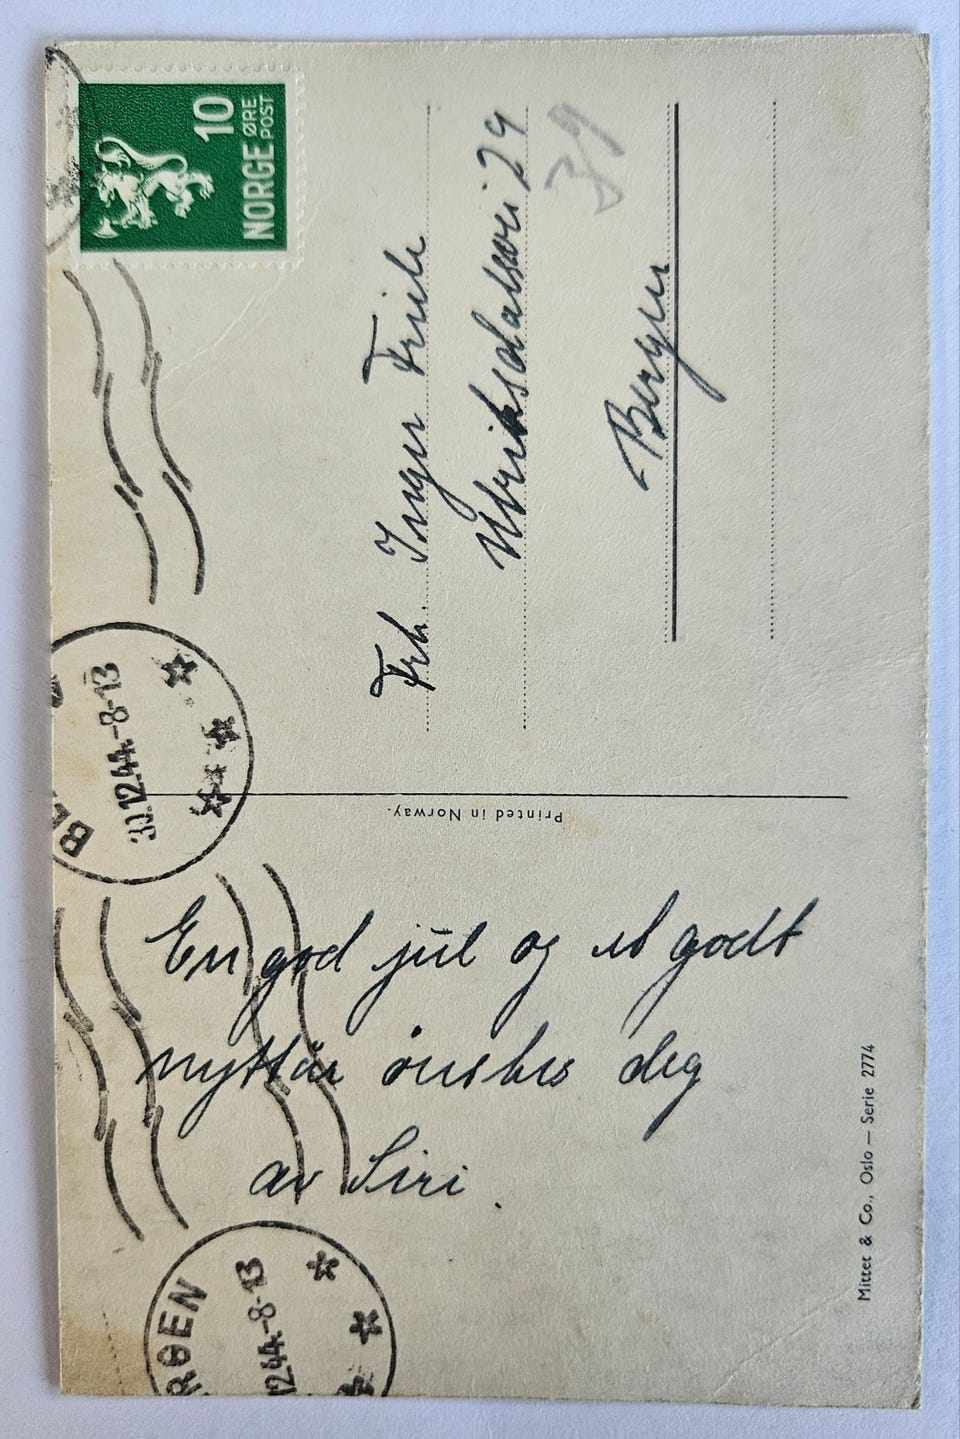 NORGE
10 ØRE
POST
BERGEN
12.44.-8-13
12.44.-8-13
Frk. Inger Friele
Ulriksdalsvei 29
39
Bergen
Printed in Norway.
En god jul og et godt
nyttår ønskes deg
av Siri.
Mittet & Co., Oslo — Serie 2774